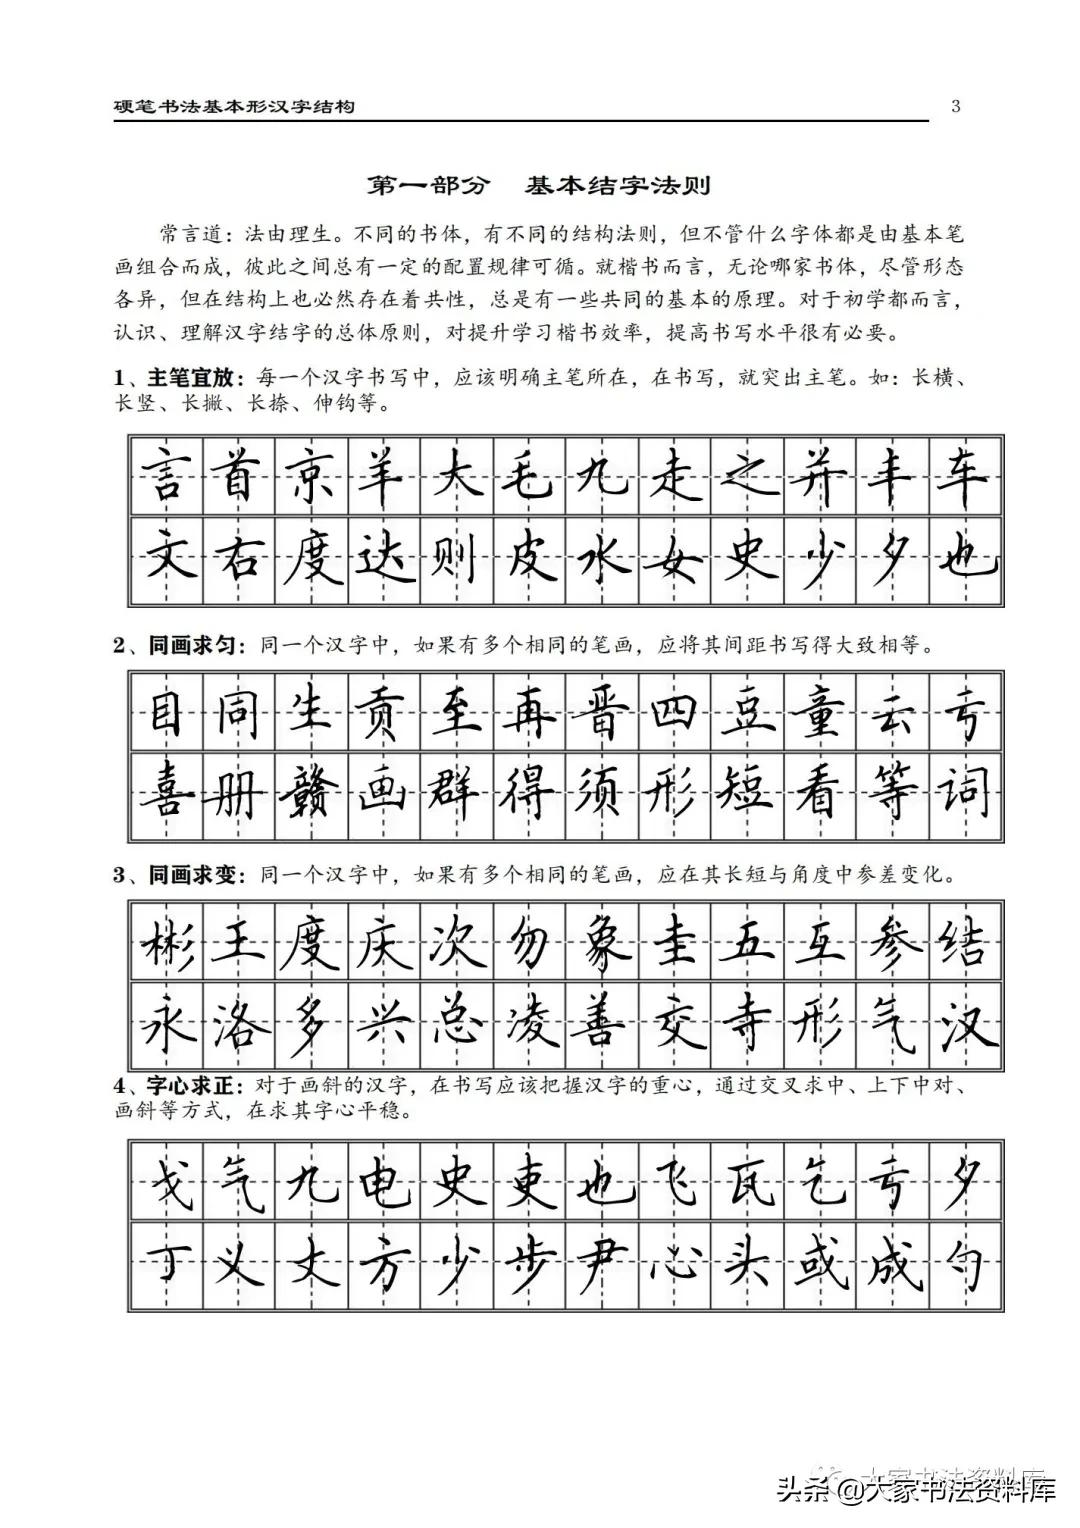 硬笔书法基本形汉字结构 3
第一部分 基本结字法则
常言道：法由理生。不同的书体，有不同的结构法则，但不管什么字体都是由基本笔
画组合而成，彼此之间总有一定的配置规律可循。就楷书而言，无论哪家书体，尽管形态
各异，但在结构上也必然存在着共性，总是有一些共同的基本的原理。对于初学都而言，
认识、理解汉字结字的总体原则，对提升学习楷书效率，提高书写水平很有必要。
1、主笔宜放：每一个汉字书写中，应该明确主笔所在，在书写，就突出主笔。如：长横、
长竖、长撇、长捺、伸钩等。
言首京羊大毛九走之并丰车
文右度达则皮水女史少夕也
2、同画求匀：同一个汉字中，如果有多个相同的笔画，应将其间距书写得大致相等。
目同生贡至再晋四豆童云亏
喜册赣画群得须形短看等词
3、同画求变：同一个汉字中，如果有多个相同的笔画，应在其长短与角度中参差变化。
彬王度庆次勿象圭五互参结
永洛多兴总凌善交寺形气汉
4、字心求正：对于画斜的汉字，在书写应该把握汉字的重心，通过交叉求中、上下中对、
画斜等方式，在求其字心平稳。
戈气九电史吏也飞瓦乞亏夕
丁义丈方少步尹心头或成勺
大家书法资料库
头条@大家书法资料库